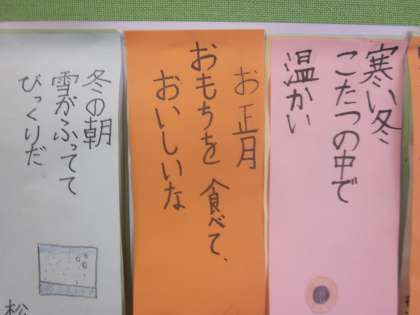 寒い冬
こたつの中で
温かい
お正月
おもちを食べて、
おいしいな
冬の朝
雪がふってて
びっくりだ
松